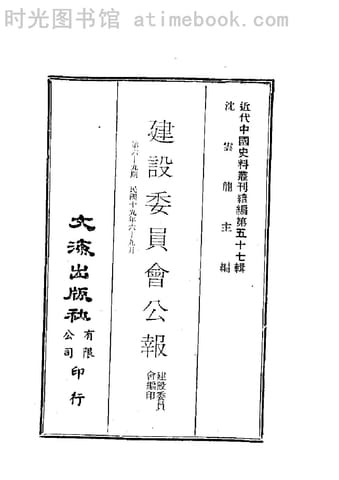 时光图书馆 atimebook.com
近代中國史料叢刊續編第五十七輯
沈雲龍主編
建設委員會公報
建設委員
會編印
第六—九期 民國十九年六—九月
文海出版社
有限
公司
印行